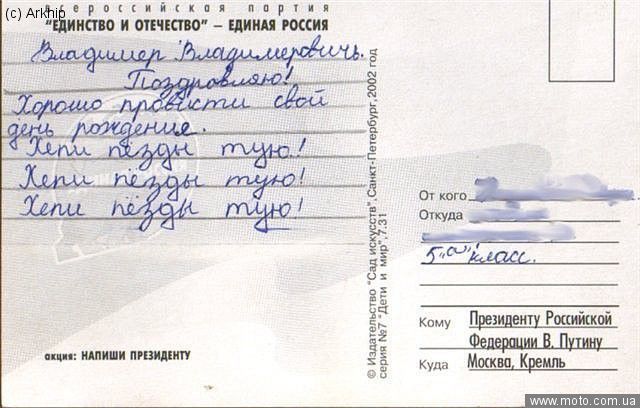 (c) Arkhip
Всероссийская партия
"ЕДИНСТВО И ОТЕЧЕСТВО" – ЕДИНАЯ РОССИЯ
Владимер Владимеровичь.
Поздровляю!
Хорошо провисти свой
день рождения.
Хепи пёзды тую!
Хепи пёзды тую!
Хепи пёзды тую!
акция: НАПИШИ ПРЕЗИДЕНТУ
© Издательство "Сад искусств", Санкт-Петербург, 2002 год
серия №7 "Дети и мир", 7.31
От кого
Откуда
5 "а" класс.
Кому Президенту Российской
Федерации В. Путину
Куда Москва, Кремль
www.moto.com.ua